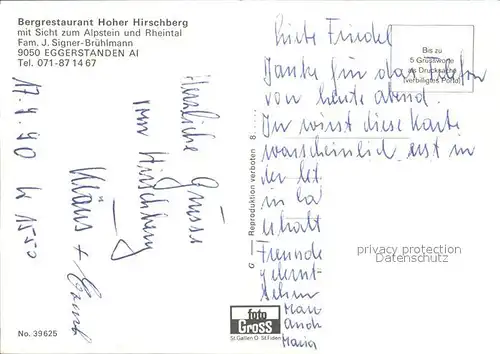 Bergrestaurant Hoher Hirschberg
mit Sicht zum Alpstein und Rheintal
Fam. J. Signer-Brühlmann
9050 EGGERSTANDEN AI
Tel. 071-87 14 67
Bis zu
5 Grussworte
als Drucksache
(verbilligtes Porto)
Herzliche Grüsse
vom Hirschberg
Klaus +
17.4.90
Liebe Friedel
Danke für das Telefon
von heute abend.
Du wirst diese Karte
warscheinlich erst in
der
in
erhalt
Freunde
gelernt
G — Reproduktion verboten 8....
privacy protection
Datenschutz
No. 39625
foto
Gross
St. Gallen O St. Fiden